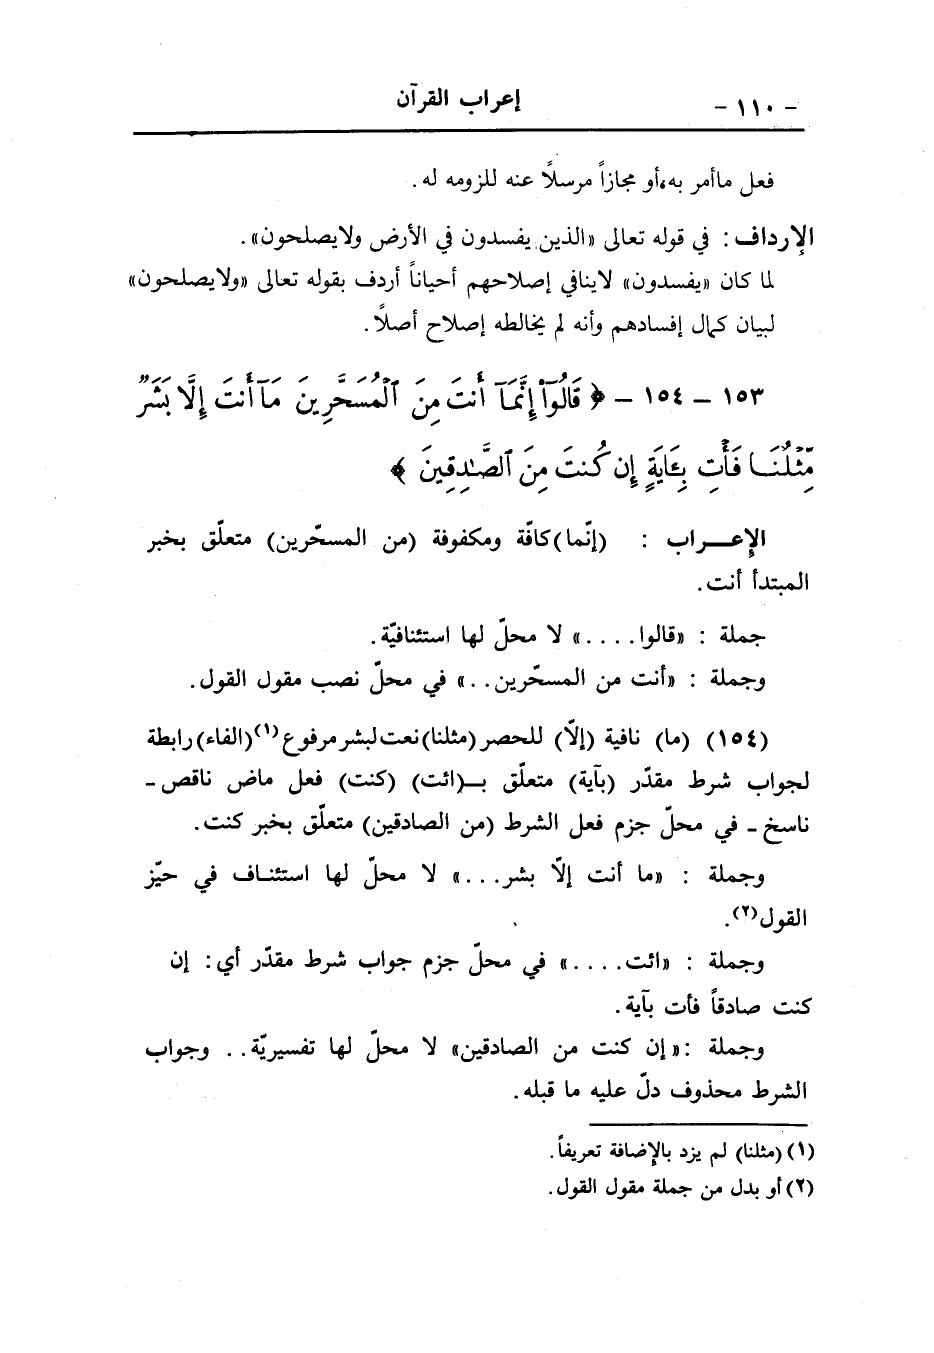 - ١١٠ - إعراب القرآن
فعل ماأمر به،أو مجازاً مرسلاً عنه للزومه له .
الإرداف : في قوله تعالى «الذين يفسدون في الأرض ولايصلحون» .
لما كان «يفسدون» لاينافي إصلاحهم أحياناً أردف بقوله تعالى «ولايصلحون»
لبيان كمال إفسادهم وأنه لم يخالطه إصلاح أصلاً .
١٥٣ - ١٥٤ - ﴿ قَالُوٓا۟ إِنَّمَآ أَنتَ مِنَ ٱلْمُسَحَّرِينَ مَآ أَنتَ إِلَّا بَشَرٌ
مِّثْلُنَا فَأْتِ بِـَٔايَةٍ إِن كُنتَ مِنَ ٱلصَّٰدِقِينَ ﴾
الإعـــراب : (إنّما) كافّة ومكفوفة (من المسحّرين) متعلّق بخبر
المبتدأ أنت .
جملة : «قالوا . . . .» لا محلّ لها استئنافيّة .
وجملة : «أنت من المسحّرين . .» في محلّ نصب مقول القول .
(١٥٤) (ما) نافية (إلّا) للحصر (مثلنا) نعت لبشر مرفوع(١) (الفاء) رابطة
لجواب شرط مقدّر (بآية) متعلّق بـ(ائت) (كنت) فعل ماض ناقص -
ناسخ - في محلّ جزم فعل الشرط (من الصادقين) متعلّق بخبر كنت .
وجملة : «ما أنت إلّا بشر . . .» لا محلّ لها استئنـاف في حيّز
القول(٢) .
وجملة : «ائت . . . .» في محلّ جزم جواب شرط مقدّر أي : إن
كنت صادقاً فأت بآية .
وجملة : «إن كنت من الصادقين» لا محلّ لها تفسيريّة . . وجواب
الشرط محذوف دلّ عليه ما قبله .
(١) (مثلنا) لم يزد بالإضافة تعريفاً .
(٢) أو بدل من جملة مقول القول .